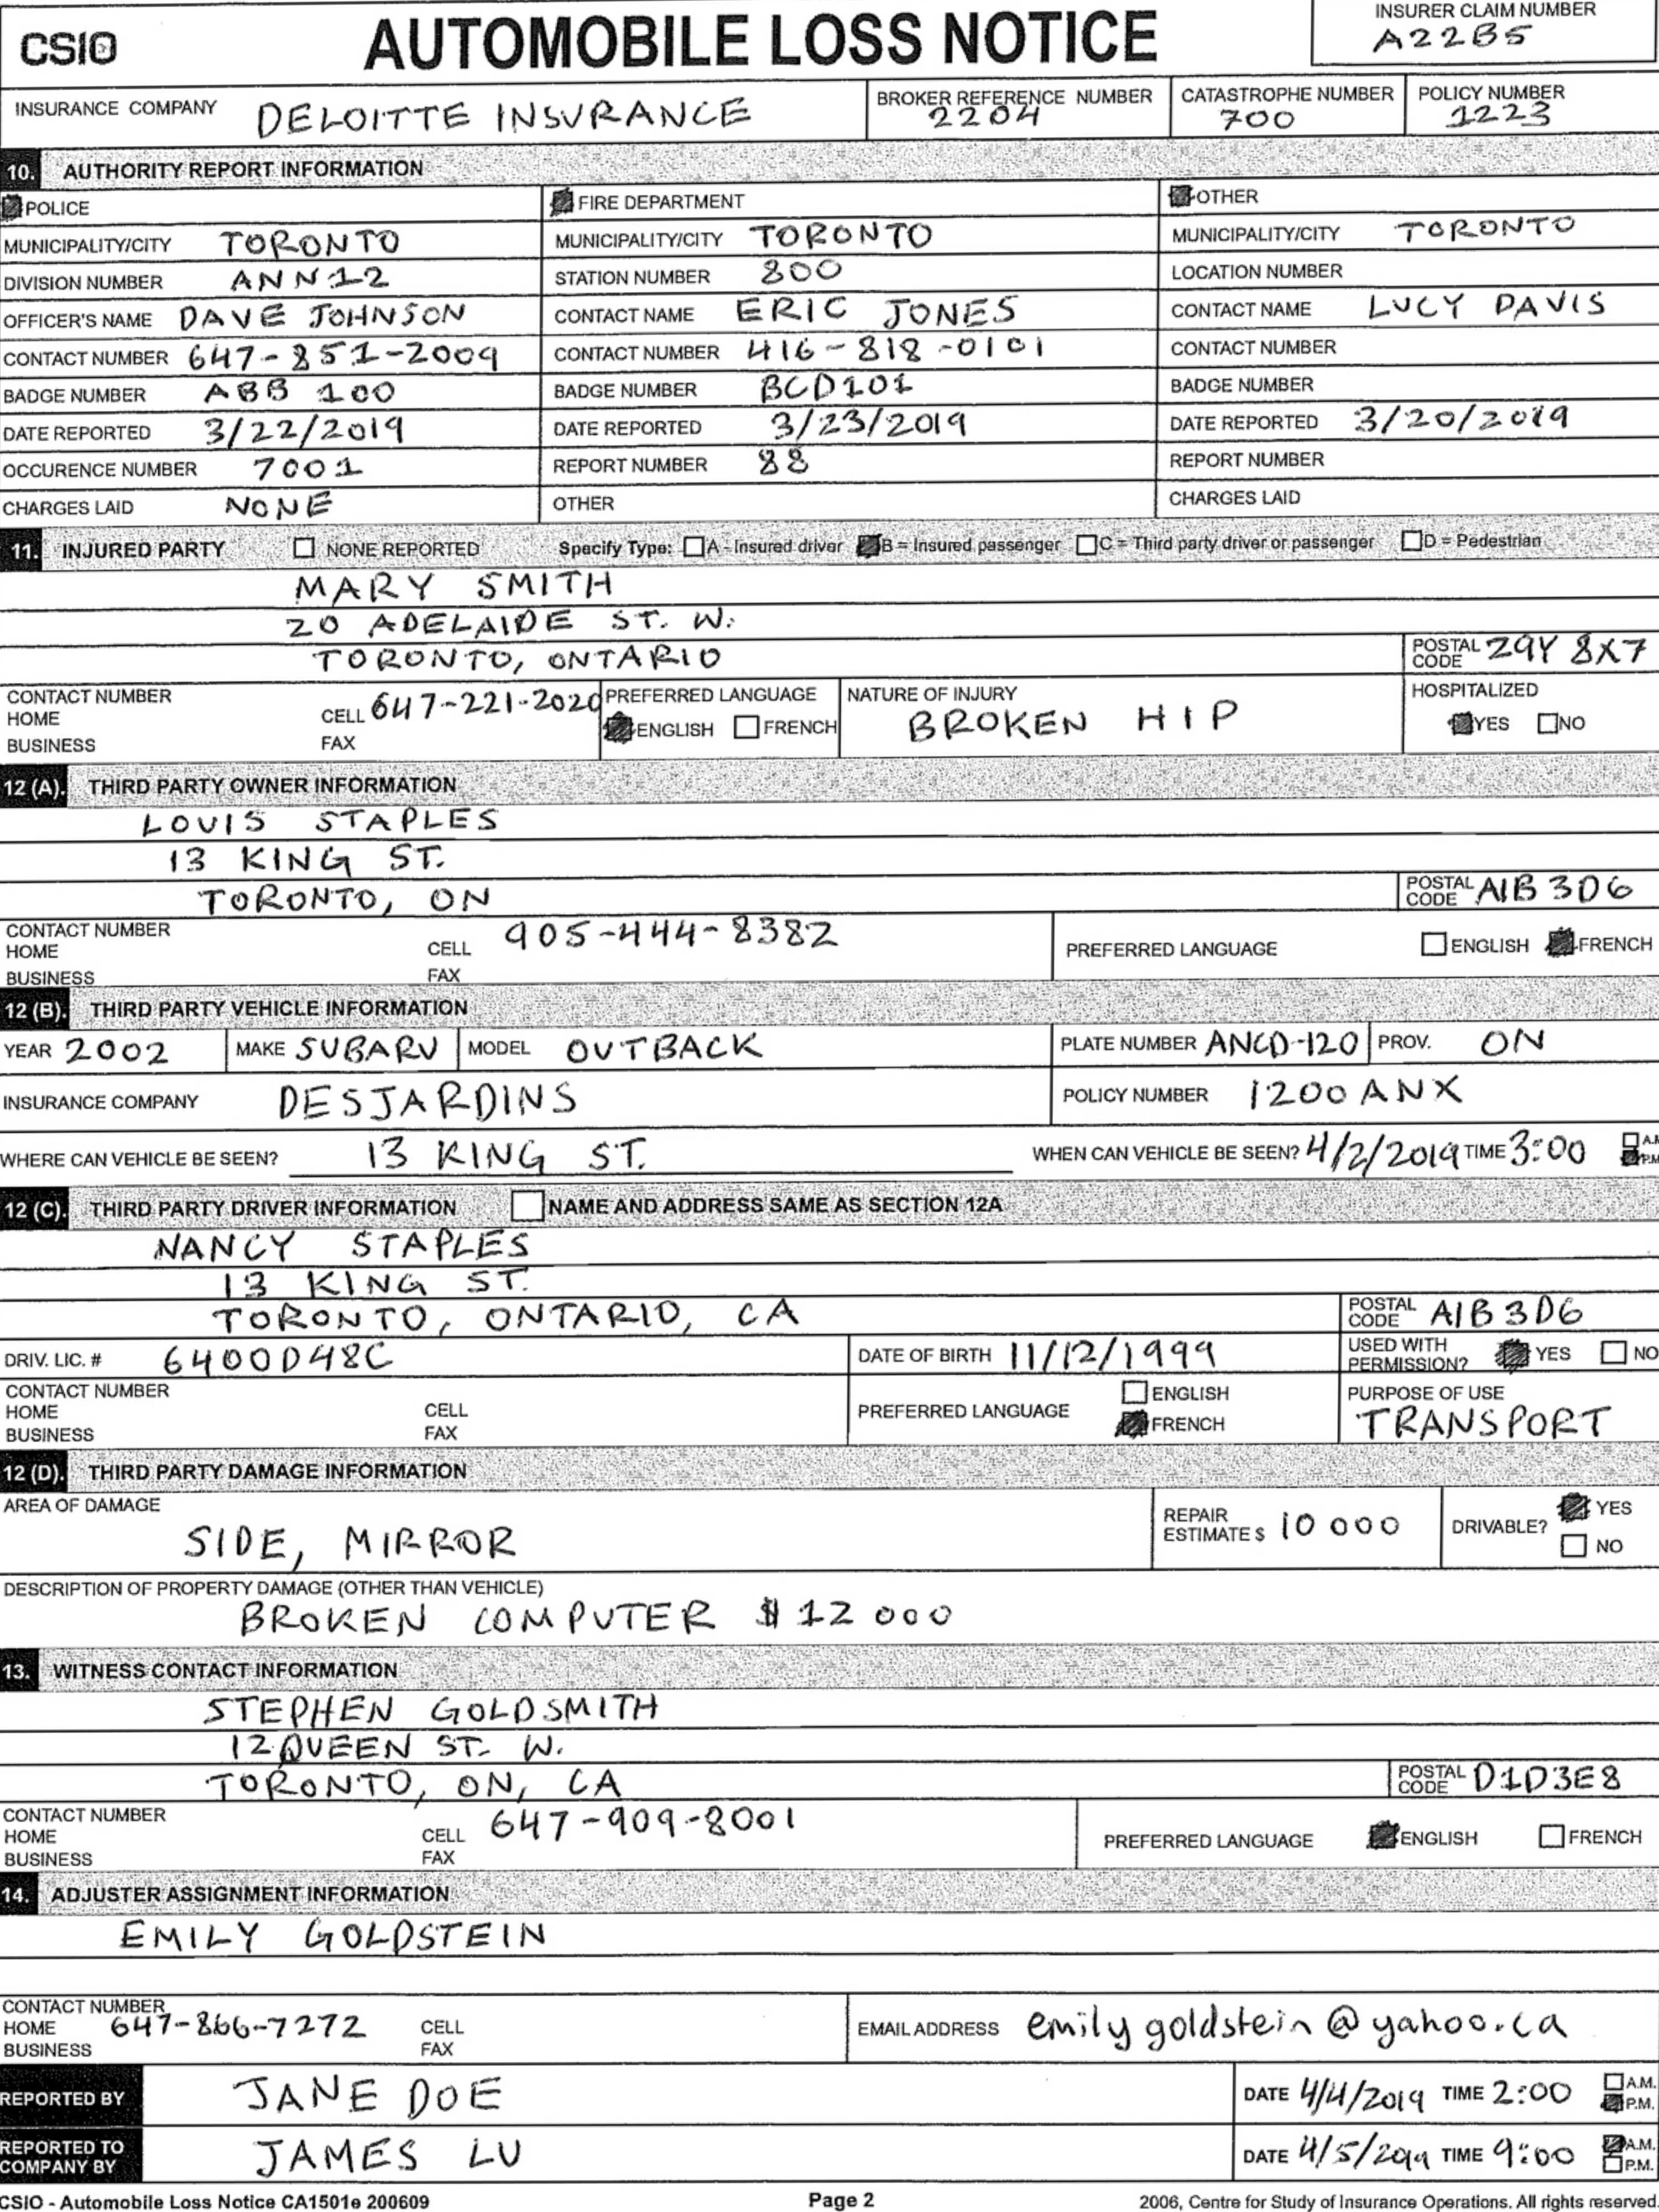 CSIO
AUTOMOBILE LOSS NOTICE
INSURER CLAIM NUMBER
A22B5
INSURANCE COMPANY DELOITTE INSURANCE
BROKER REFERENCE NUMBER
2204
CATASTROPHE NUMBER
700
POLICY NUMBER
1223
10. AUTHORITY REPORT INFORMATION
POLICE FIRE DEPARTMENT OTHER
MUNICIPALITY/CITY TORONTO MUNICIPALITY/CITY TORONTO MUNICIPALITY/CITY TORONTO
DIVISION NUMBER ANN12 STATION NUMBER 800 LOCATION NUMBER
OFFICER'S NAME DAVE JOHNSON CONTACT NAME ERIC JONES CONTACT NAME LUCY DAVIS
CONTACT NUMBER 647-851-2009 CONTACT NUMBER 416-818-0101 CONTACT NUMBER
BADGE NUMBER ABB 100 BADGE NUMBER BCD101 BADGE NUMBER
DATE REPORTED 3/22/2019 DATE REPORTED 3/23/2019 DATE REPORTED 3/20/2019
OCCURENCE NUMBER 7001 REPORT NUMBER 88 REPORT NUMBER
CHARGES LAID NONE OTHER CHARGES LAID
11. INJURED PARTY NONE REPORTED Specify Type: A - Insured driver B = Insured passenger C = Third party driver or passenger D = Pedestrian
MARY SMITH
20 ADELAIDE ST. W.
TORONTO, ONTARIO POSTAL CODE Z9Y 8X7
CONTACT NUMBER
HOME CELL 647-221-2020
BUSINESS FAX
PREFERRED LANGUAGE
ENGLISH FRENCH
NATURE OF INJURY
BROKEN HIP
HOSPITALIZED
YES NO
12 (A). THIRD PARTY OWNER INFORMATION
LOUIS STAPLES
13 KING ST.
TORONTO, ON POSTAL CODE A1B 3D6
CONTACT NUMBER
HOME CELL 905-444-8382
BUSINESS FAX
PREFERRED LANGUAGE ENGLISH FRENCH
12 (B). THIRD PARTY VEHICLE INFORMATION
YEAR 2002 MAKE SUBARU MODEL OUTBACK PLATE NUMBER ANCD-120 PROV. ON
INSURANCE COMPANY DESJARDINS POLICY NUMBER 1200ANX
WHERE CAN VEHICLE BE SEEN? 13 KING ST. WHEN CAN VEHICLE BE SEEN? 4/2/2019 TIME 3:00 A.M P.M
12 (C). THIRD PARTY DRIVER INFORMATION NAME AND ADDRESS SAME AS SECTION 12A
NANCY STAPLES
13 KING ST.
TORONTO, ONTARIO, CA POSTAL CODE A1B 3D6
DRIV. LIC. # 6400D48C DATE OF BIRTH 11/12/1999 USED WITH PERMISSION? YES NO
CONTACT NUMBER
HOME CELL
BUSINESS FAX
PREFERRED LANGUAGE ENGLISH FRENCH
PURPOSE OF USE
TRANSPORT
12 (D). THIRD PARTY DAMAGE INFORMATION
AREA OF DAMAGE
SIDE, MIRROR
REPAIR ESTIMATE $ 10 000 DRIVABLE? YES NO
DESCRIPTION OF PROPERTY DAMAGE (OTHER THAN VEHICLE)
BROKEN COMPUTER $12 000
13. WITNESS CONTACT INFORMATION
STEPHEN GOLDSMITH
12 QUEEN ST. W.
TORONTO, ON, CA POSTAL CODE D1D3E8
CONTACT NUMBER
HOME CELL 647-909-8001
BUSINESS FAX
PREFERRED LANGUAGE ENGLISH FRENCH
14. ADJUSTER ASSIGNMENT INFORMATION
EMILY GOLDSTEIN
CONTACT NUMBER
HOME 647-866-7272 CELL
BUSINESS FAX
EMAIL ADDRESS emilygoldstein@yahoo.ca
REPORTED BY JANE DOE DATE 4/4/2019 TIME 2:00 A.M. P.M.
REPORTED TO COMPANY BY JAMES LU DATE 4/5/2019 TIME 9:00 A.M. P.M.
CSIO - Automobile Loss Notice CA1501e 200609 Page 2 2006, Centre for Study of Insurance Operations. All rights reserved.